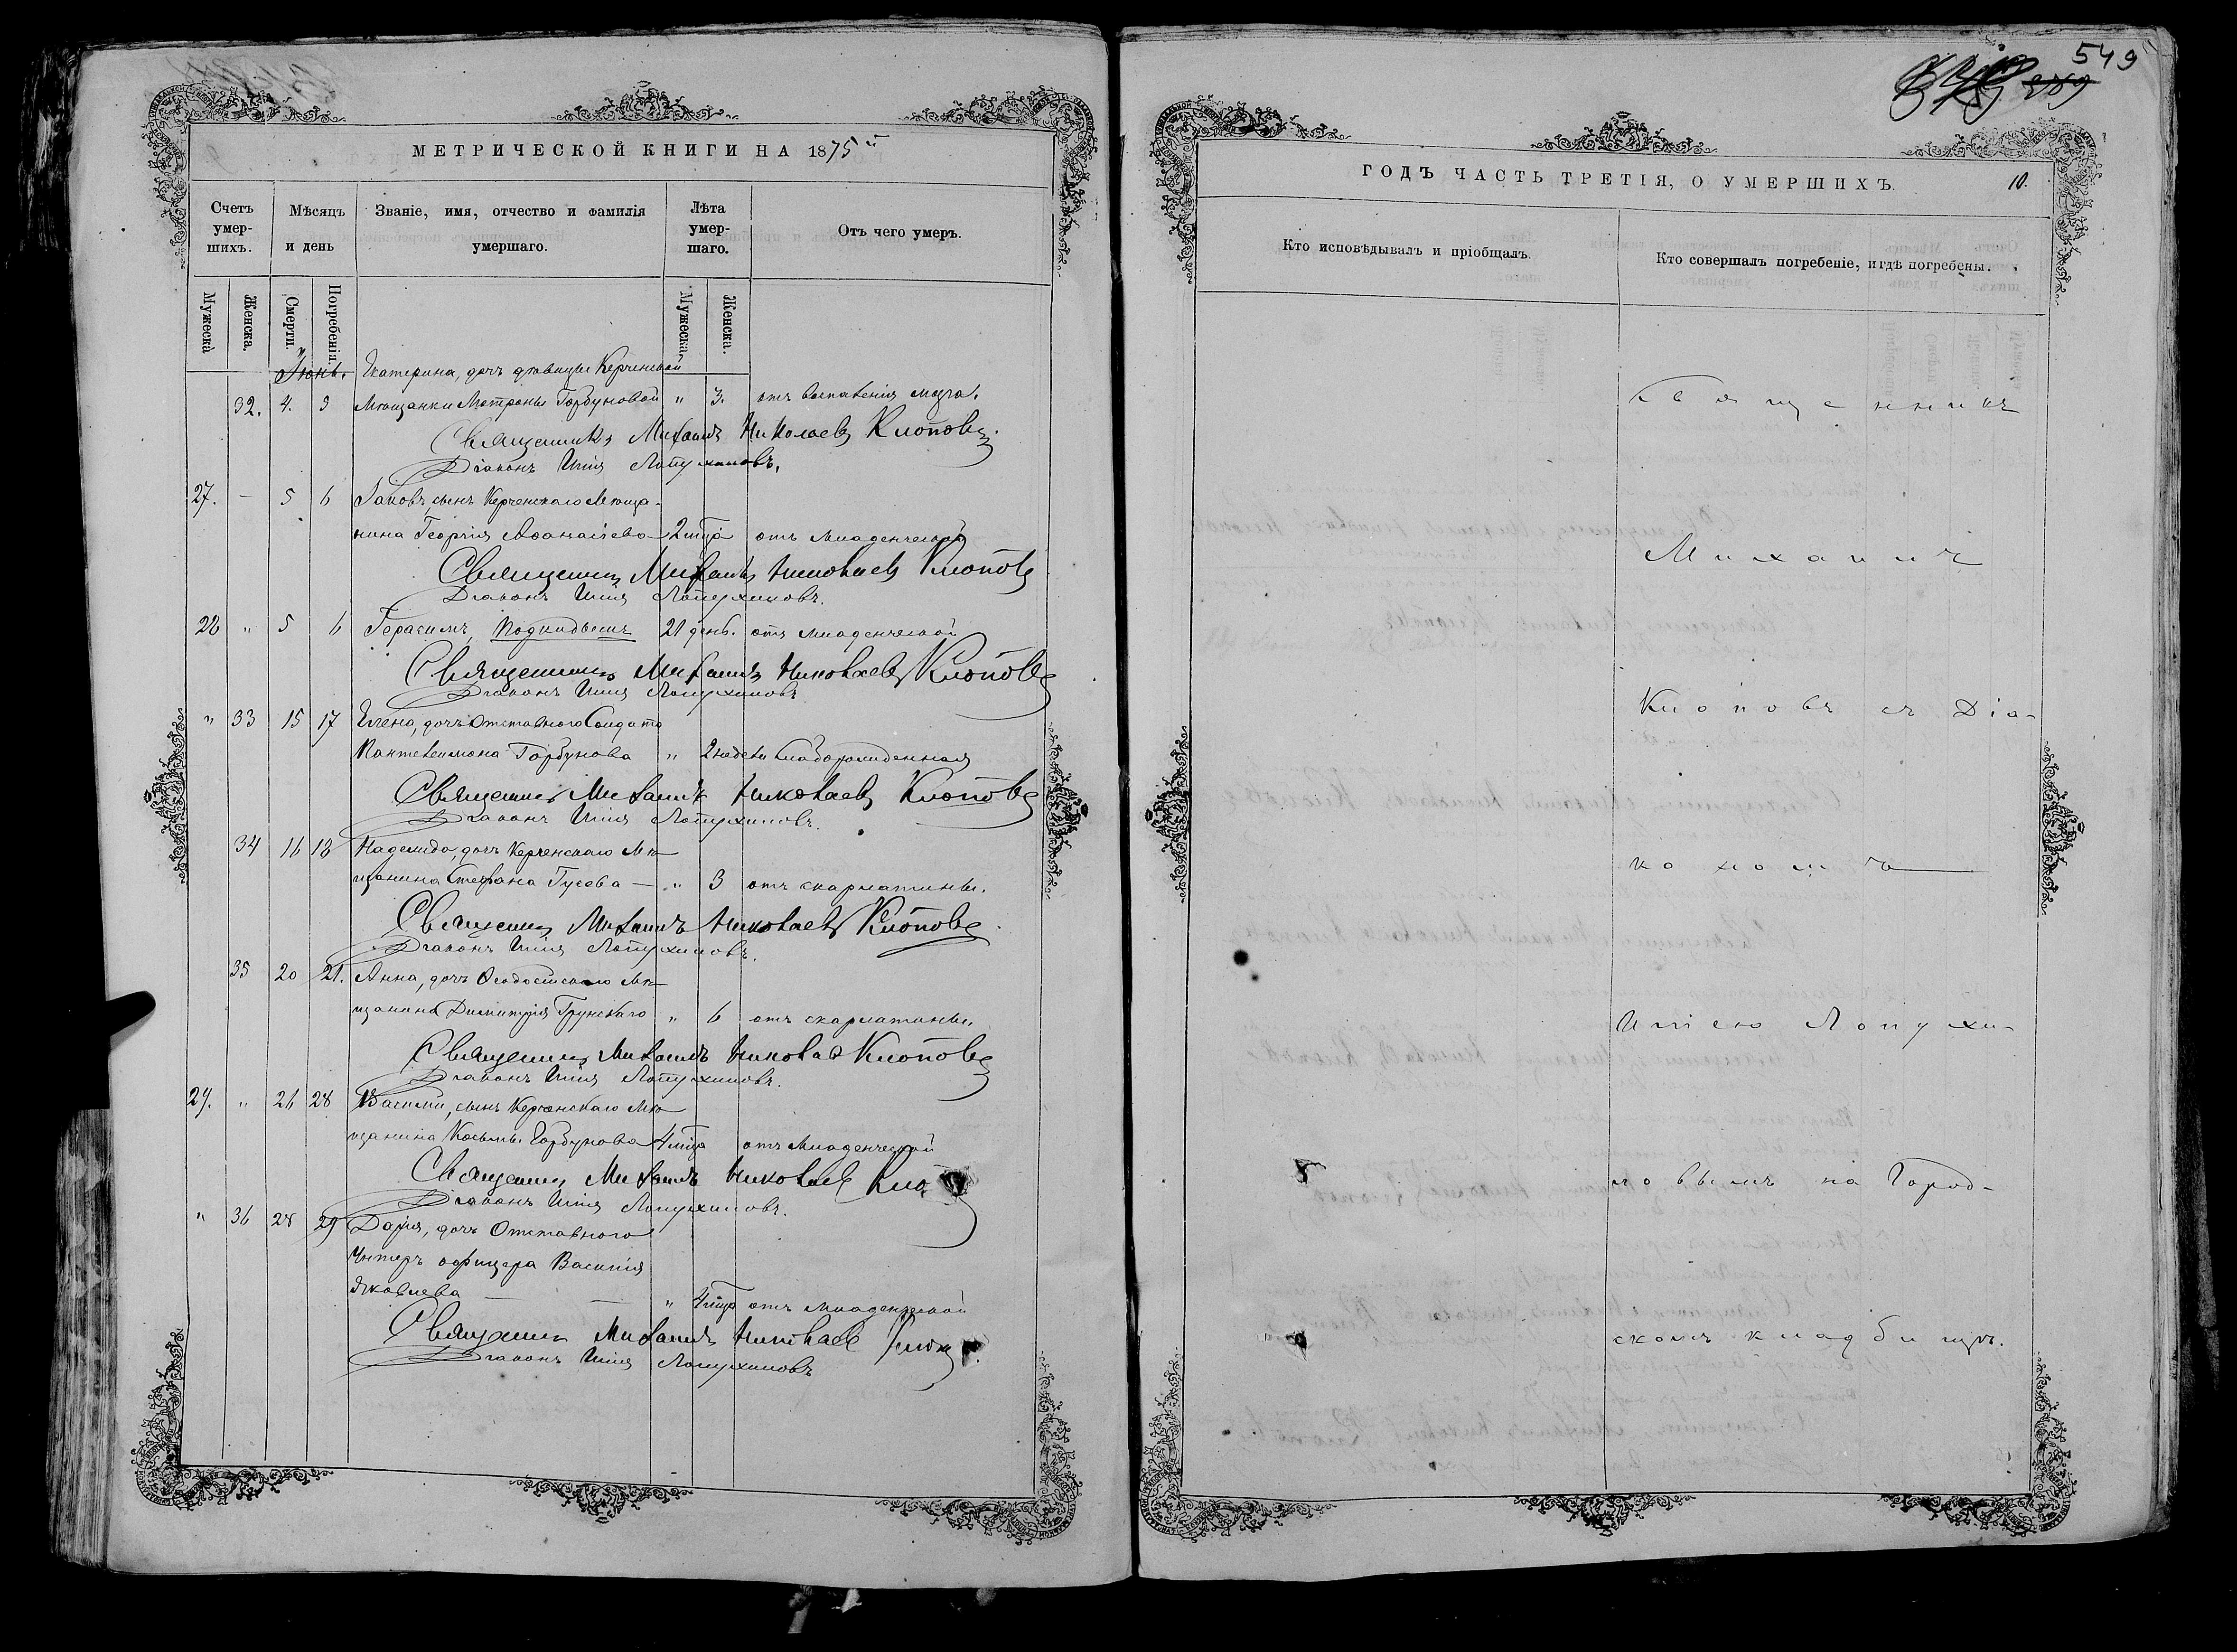 549
МЕТРИЧЕСКОЙ КНИГИ НА 1875й
Счетъ умер-шихъ.
Мѣсяцъ и день
Званіе, имя, отчество и фамилія умершаго.
Лѣта умер-шаго.
Отъ чего умеръ.
Мужеска
Женска.
Смерти.
Погребенія.
Мужеска.
Женска.
Іюнь. Екатерина, дочь дѣвицы Керченской
32. 4. 5 Мѣщанки Матроны Горбуновой „ 3. отъ воспаленія мозга.
Священникъ Михаилъ Николаевъ Клоповъ.
Діаконъ Илія Лопухиновъ.
27. — 5 6 Іаковъ, сынъ Керченскаго Мѣща-
нина Георгія Аѳанасіева 2 мѣца отъ младенческой
Священникъ Михаилъ Николаевъ Клоповъ
Діаконъ Илія Лопухиновъ.
28 „ 5 6 Герасимъ, Подкидышъ 21 день. отъ младенческой
Священникъ Михаилъ Николаевъ Клоповъ
Діаконъ Илія Лопухиновъ
„ 33 15 17 Елена, дочь Отставного Солдата
Пантелеимона Горбунова „ 2 недели слаборожденная
Священникъ Михаилъ Николаевъ Клоповъ
Діаконъ Илія Лопухиновъ.
34 16 18 Надежда, дочь Керченскаго Мѣ-
щанина Стефана Гусева — „ 3 отъ скарлатины.
Священникъ Михаилъ Николаевъ Клоповъ.
Діаконъ Илія Лопухиновъ.
35 20 21. Анна, дочь Ѳеодосійскаго Мѣ-
щанина Димитрія Грунскаго „ 6 отъ скарлатины.
Священникъ Михаилъ Николаев Клоповъ
Діаконъ Илія Лопухиновъ.
29. „ 26 28 Василій, сынъ Керченскаго Мѣ-
щанина Косьмы Горбунова 4 мѣца отъ младенческой
Священникъ Михаилъ Николаев Кло
Діаконъ Илія Лопухиновъ.
„ 36 28 29 Дарія, дочь Отставного
Унтеръ офицера Василія
Яковлева — — „ 4 мѣца отъ младенческой
Священникъ Михаилъ Николаев Клоп
Діаконъ Илія Лопухиновъ
ГОДЪ ЧАСТЬ ТРЕТІЯ, О УМЕРШИХЪ. 10.
Кто исповѣдывалъ и пріобщалъ.
Кто совершалъ погребеніе, и гдѣ погребены.
Священникъ
Михаилъ
Клоповъ съ Діа-
кономъ
Иліею Лопухи-
новымъ на Город-
скомъ кладбищѣ.